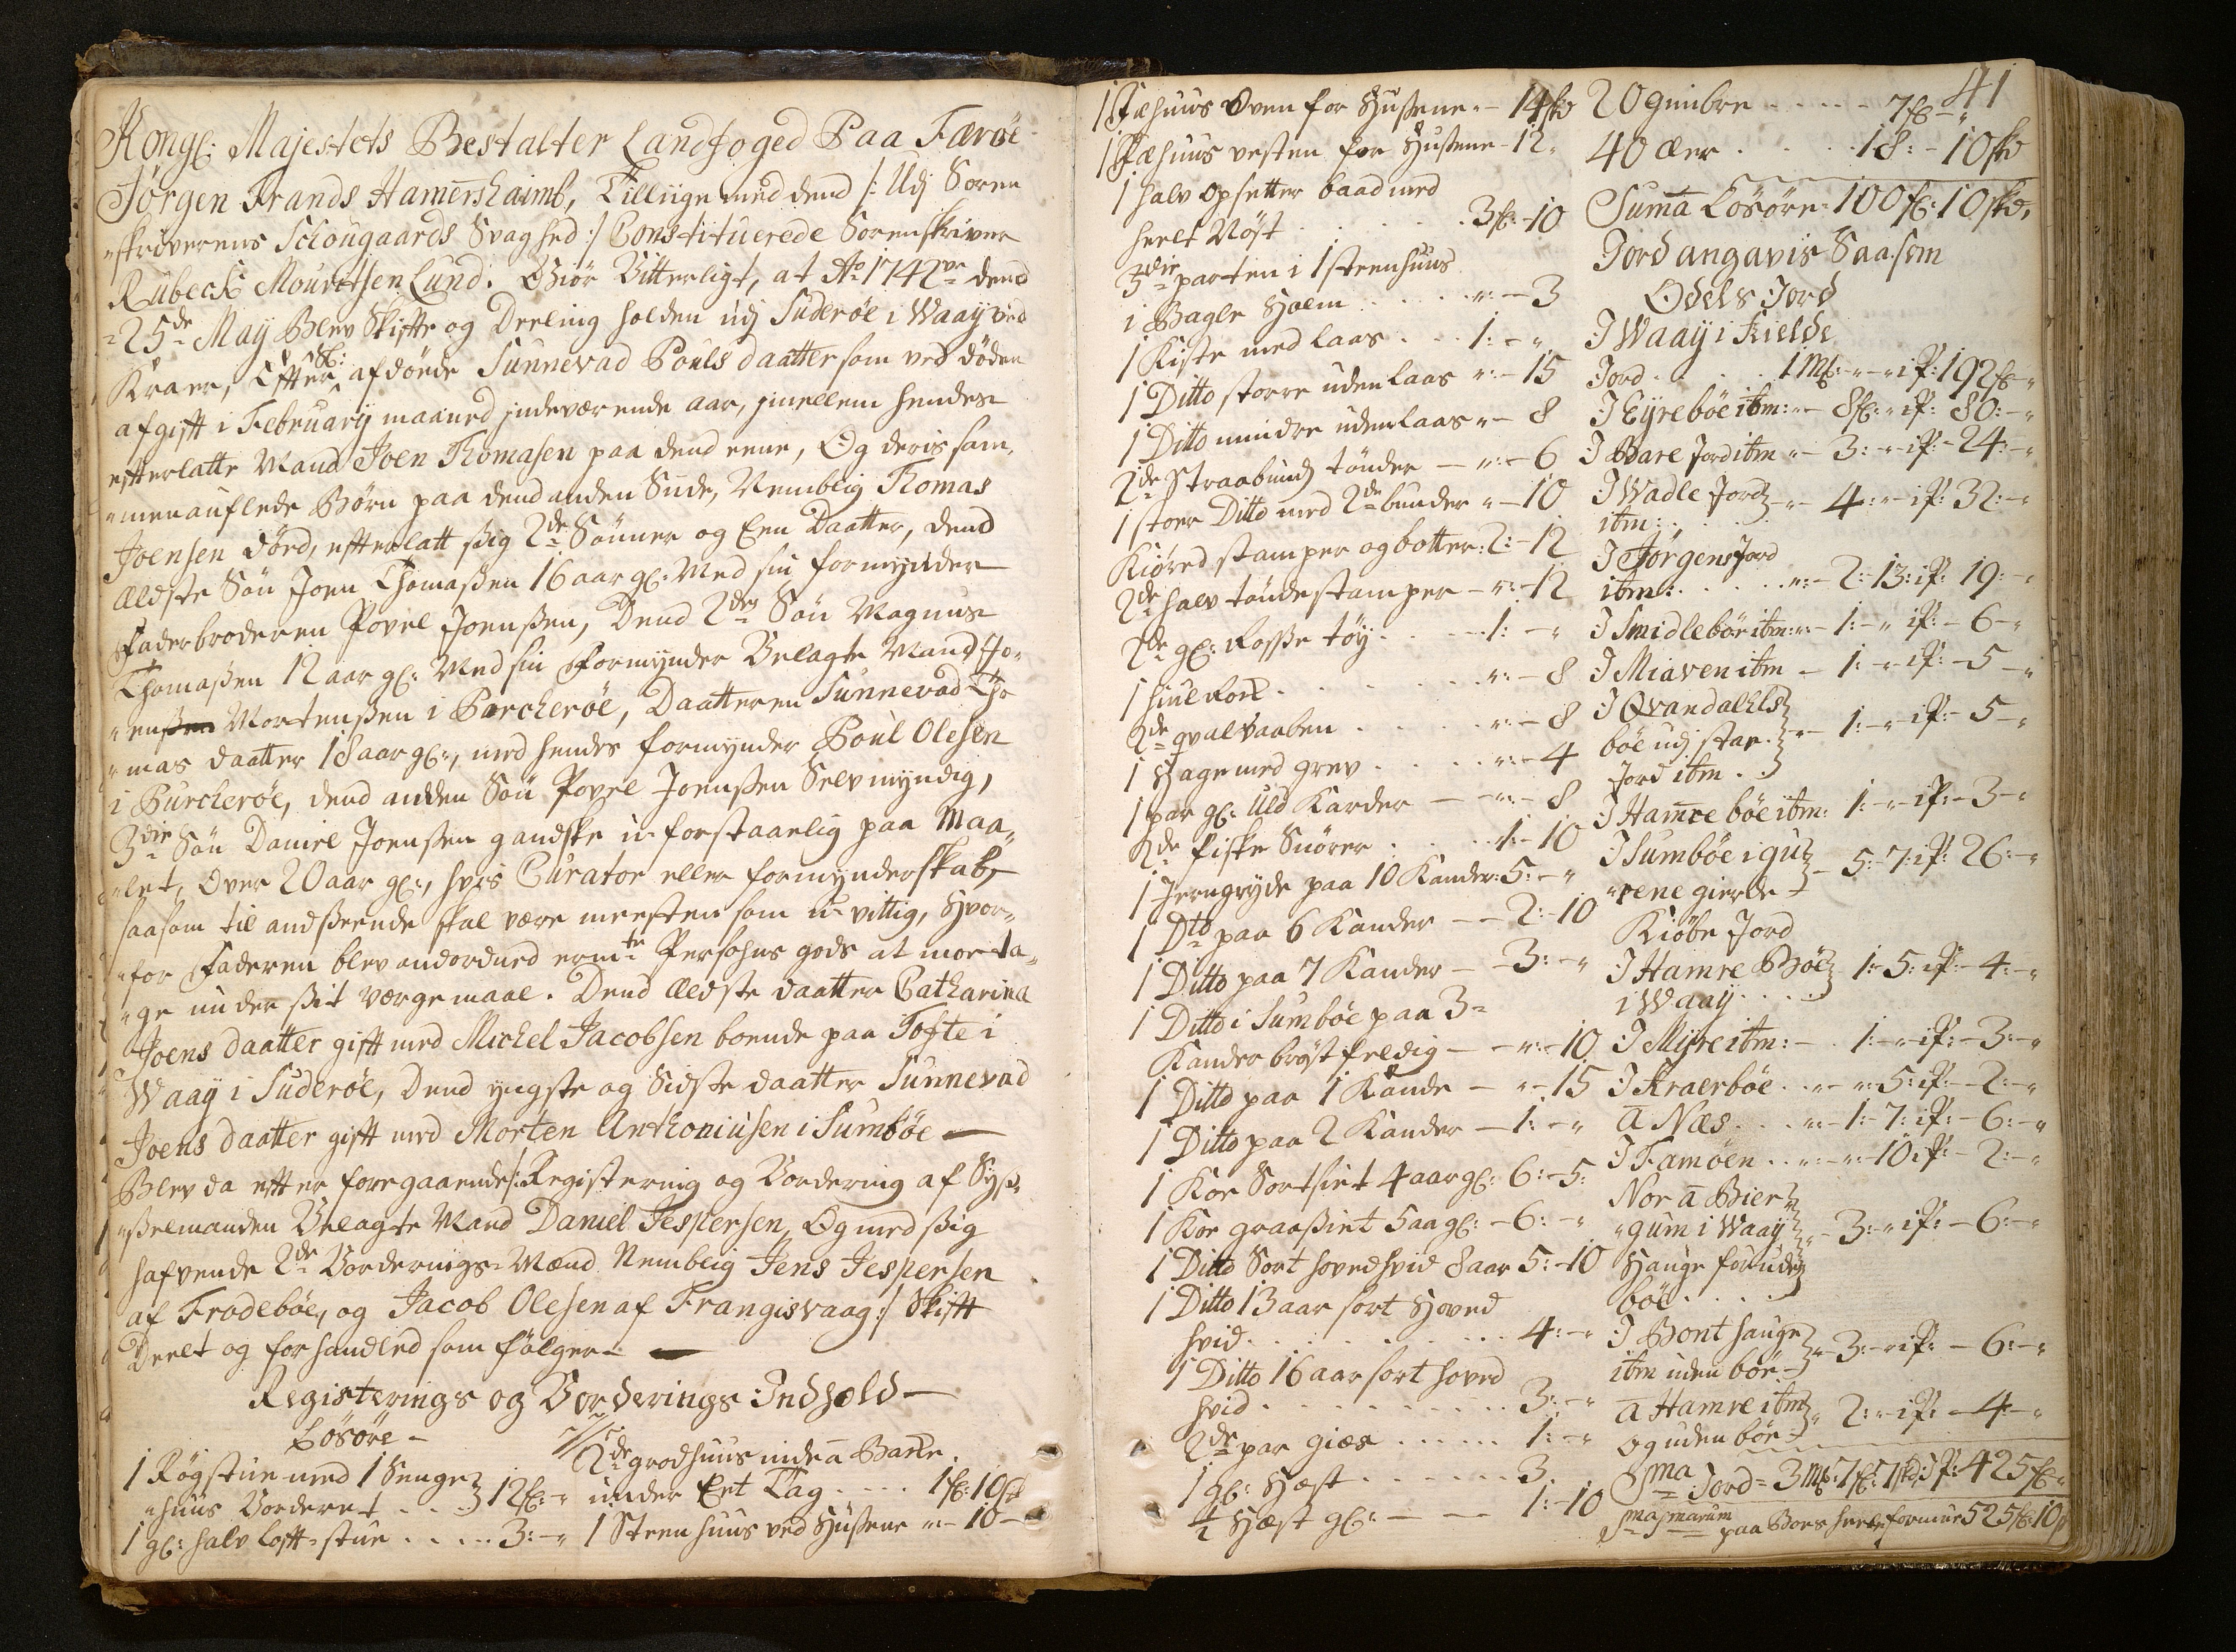 Kongl: Majestets Bestalter Landfoged Paa Færøe
Jørgen Frands Hamershaimb, Tilliige med dend /: Udj Soren
"skriverens Schougaards Svaghed :/ Constituerede Sorenskriver
Rubeck Mouritsen Lund. Giør Vitterligt, at Ao 1742ve dend
25de May Blev Skiffte og Deeling holden udj Suderøe i Waaÿ ved
Kraer, Effter Sl: afdøede Sunnevad Pouls daatter som ved døden
afgikt i Februarÿ maaned indeværende aar, imellem hendes
efterlatte Mand Joen Thomasen paa dend eene, Og deris sam-
"menauflede Børn paa dend anden Siide, Nemblig Thomas
Joensen død, efterlatt sig 2de Sønner og Een Daatter, dend
Ældste Søn Joen Thomassen 16 aar gl: Med sin formynder
Faderbroderen Povel Joenssen, Dend 2den Søn Magnus
Thomassen 12 aar gl: Med sin Formynder Velagte Mand Jo-
"enssen Mortenssen i Porcherøe, Daatteren Sunnevad Tho
"mas daatter 18 aar gl:, med hendes formynder Poul Olesen
i Purcherøe, dend anden Søn Povel Joenssen Selvmyndig,
3die Søn Daniel Joenssen gandske u-forstaanlig paa Maa-
"let, Over 20 aar gl:, hvis Curator eller formynderskab,
saasom til andseende skal være meesten som u-vittig, Hvor-
"for Faderen blev andordned ermte Persohns gods at mor ta-
"ge under sit værgemaal. Dend Ældste daatter Catharina
Joens daatter gift med Michel Jacobsen boende paa Tofte i
Waaÿ i Suderøe, Dend yngste og Sidste daatter Sunnevad
Joens daatter gift med Morten Anthoniusen i Sumbøe —
Blev da effter foregaaende /: Registering og Vordering af Sys-
"selmanden Velagte Mand Daniel Jespersen, Og med sig
hafvende 2de Vorderings-Mænd Nemblig Jens Jespersen
af Frodebøe, og Jacob Olesen af Frangisvaag :/ Skifft
Deelt og forhandled som følger —
Registerings og Vorderings Indhold —
Løsøre —
1 Røgstue med 1 Senge
"huus Vorderet . . 12 fl: "
1 gl: halv loft-stue . . . . . 3: — "
2de grodhuus inde a Backe
under Eet Tag . . . . 1 fl: 10 sk
1 Steenhuus ved Hussene " — 10 —
1 Fæhuus Oven for Hussene . — 14 sk
1 Fæhuus vesten for Hussene — 12 "
1 halv opsetter baad med
heelt Nøst . . . . . . . 3 fl: — 10
3die parten i 1 steenhuus
i Bagle Holm . . . . . ": — 3
1 Kiste med laas . . . 1: — "
1 Ditto større uden laas ": — 15
1 Ditto mindre uden laas " — 8
2de Straabundj tønder — ": — 6
1 stoer Ditto med 2de bunder " — 10
Kiøred stamper og botter: 2: — 12
2de halv tøndestamper — ": — 12
2de gl: Rosse tøy . . . . 1: — "
1 hiul Rock . . . . . . ": — 8
2de qvalvaaben . . . . . ": — 8
1 Hage med grev . . . . ": — 4
1 par gl: Uld Karder — — ": — 8
2de fiske Snører . . . . 1: — 10
1 Jerngryde paa 10 Kander: 5: — "
1 Dto paa 6 Kander — — 2: — 10
1 Ditto paa 7 Kander — — 3: — "
1 Ditto i Sumbøe paa 3
Kander brøstfeldig — — ": — 10
1 Ditto paa 1 Kande — " — 15
1 Ditto paa 2 Kander — 1: — "
1 Koe Sortsiet 4 aar gl: 6: — 5:
1 Koe graasiet 5 aa gl: — 6: — "
1 Ditto Sort hoved hvid 8 aar 5: — 10
1 Ditto 13 aar sort Hoved
hvid . . . . . . . . . . 4: — "
1 Ditto 16 aar sort hoved
hvid . . . . . . . . . . 3: — "
2de par giæs . . . . . . 1: — "
1 gl: Hæst . . . . . . . 3.
1/2 Hæst gl: — — — 1: — 10
41
20 gimbre . . . . . 7 fl: — "
40 æer . . . . . 18: — 10 sk
Suma Løsøre = 100 fl: 10 sk.
Jord angavis Saasom
Odels Jord
I Waaÿ i Kielde
Jord . . . 1 Mk: — " — " iP: 192 fl: — "
I Eyrebøe itm: " — 8 fl: " iP: 80: — "
I Bare Jord itm " — 3: — " iP: — 24: — "
I Wadle Jord
itm: . . . . . . " — 4: — " iP: 32: — "
I Jørgens Jord
itm: . . . . . ": — 2: — 13: iP: 19: — "
I Smidlebøe itm: ": — 1: — " iP: — 6 — "
I Miaven itm — 1: — " iP: — 5 — "
I Qvandalels
bøe udj star
Jord itm . . " — 1: — " iP: — 5 — "
I Hamre bøe itm: 1: — " iP: — 3 — "
I Sumbøe i gu
"rene gierde — 5: — 7: iP: 26: — "
Kiøbe Jord
I Hamre Bøe
i Waaÿ . . . . 1: — 5: iP: — 4: — "
I Mÿre itm: — . 1: — " iP: — 3: — "
I Kraerbøe . . " — ": 5: iP: — 2: — "
a Næs . . . ": — 1: — 7: iP: — 6: — "
I Famøen . . ": — ": — 10 iP: — 2: — "
Nor a Bier
"gum i Waaÿ
Hauge foruden
bøe . . . . " — 3: — " iP: — 6: — "
I Bont hauge
itm uden bøe " — 3: — " iP: — 6: — "
a Hamre itm
og uden bøe " 2: — " iP: — 4: — "
Sma Jord = 3 Mk: 7 fl: 7 sk: iP: 425 fl: "
Sma Smarum paa Boes heele formue 525 fl: 10 s